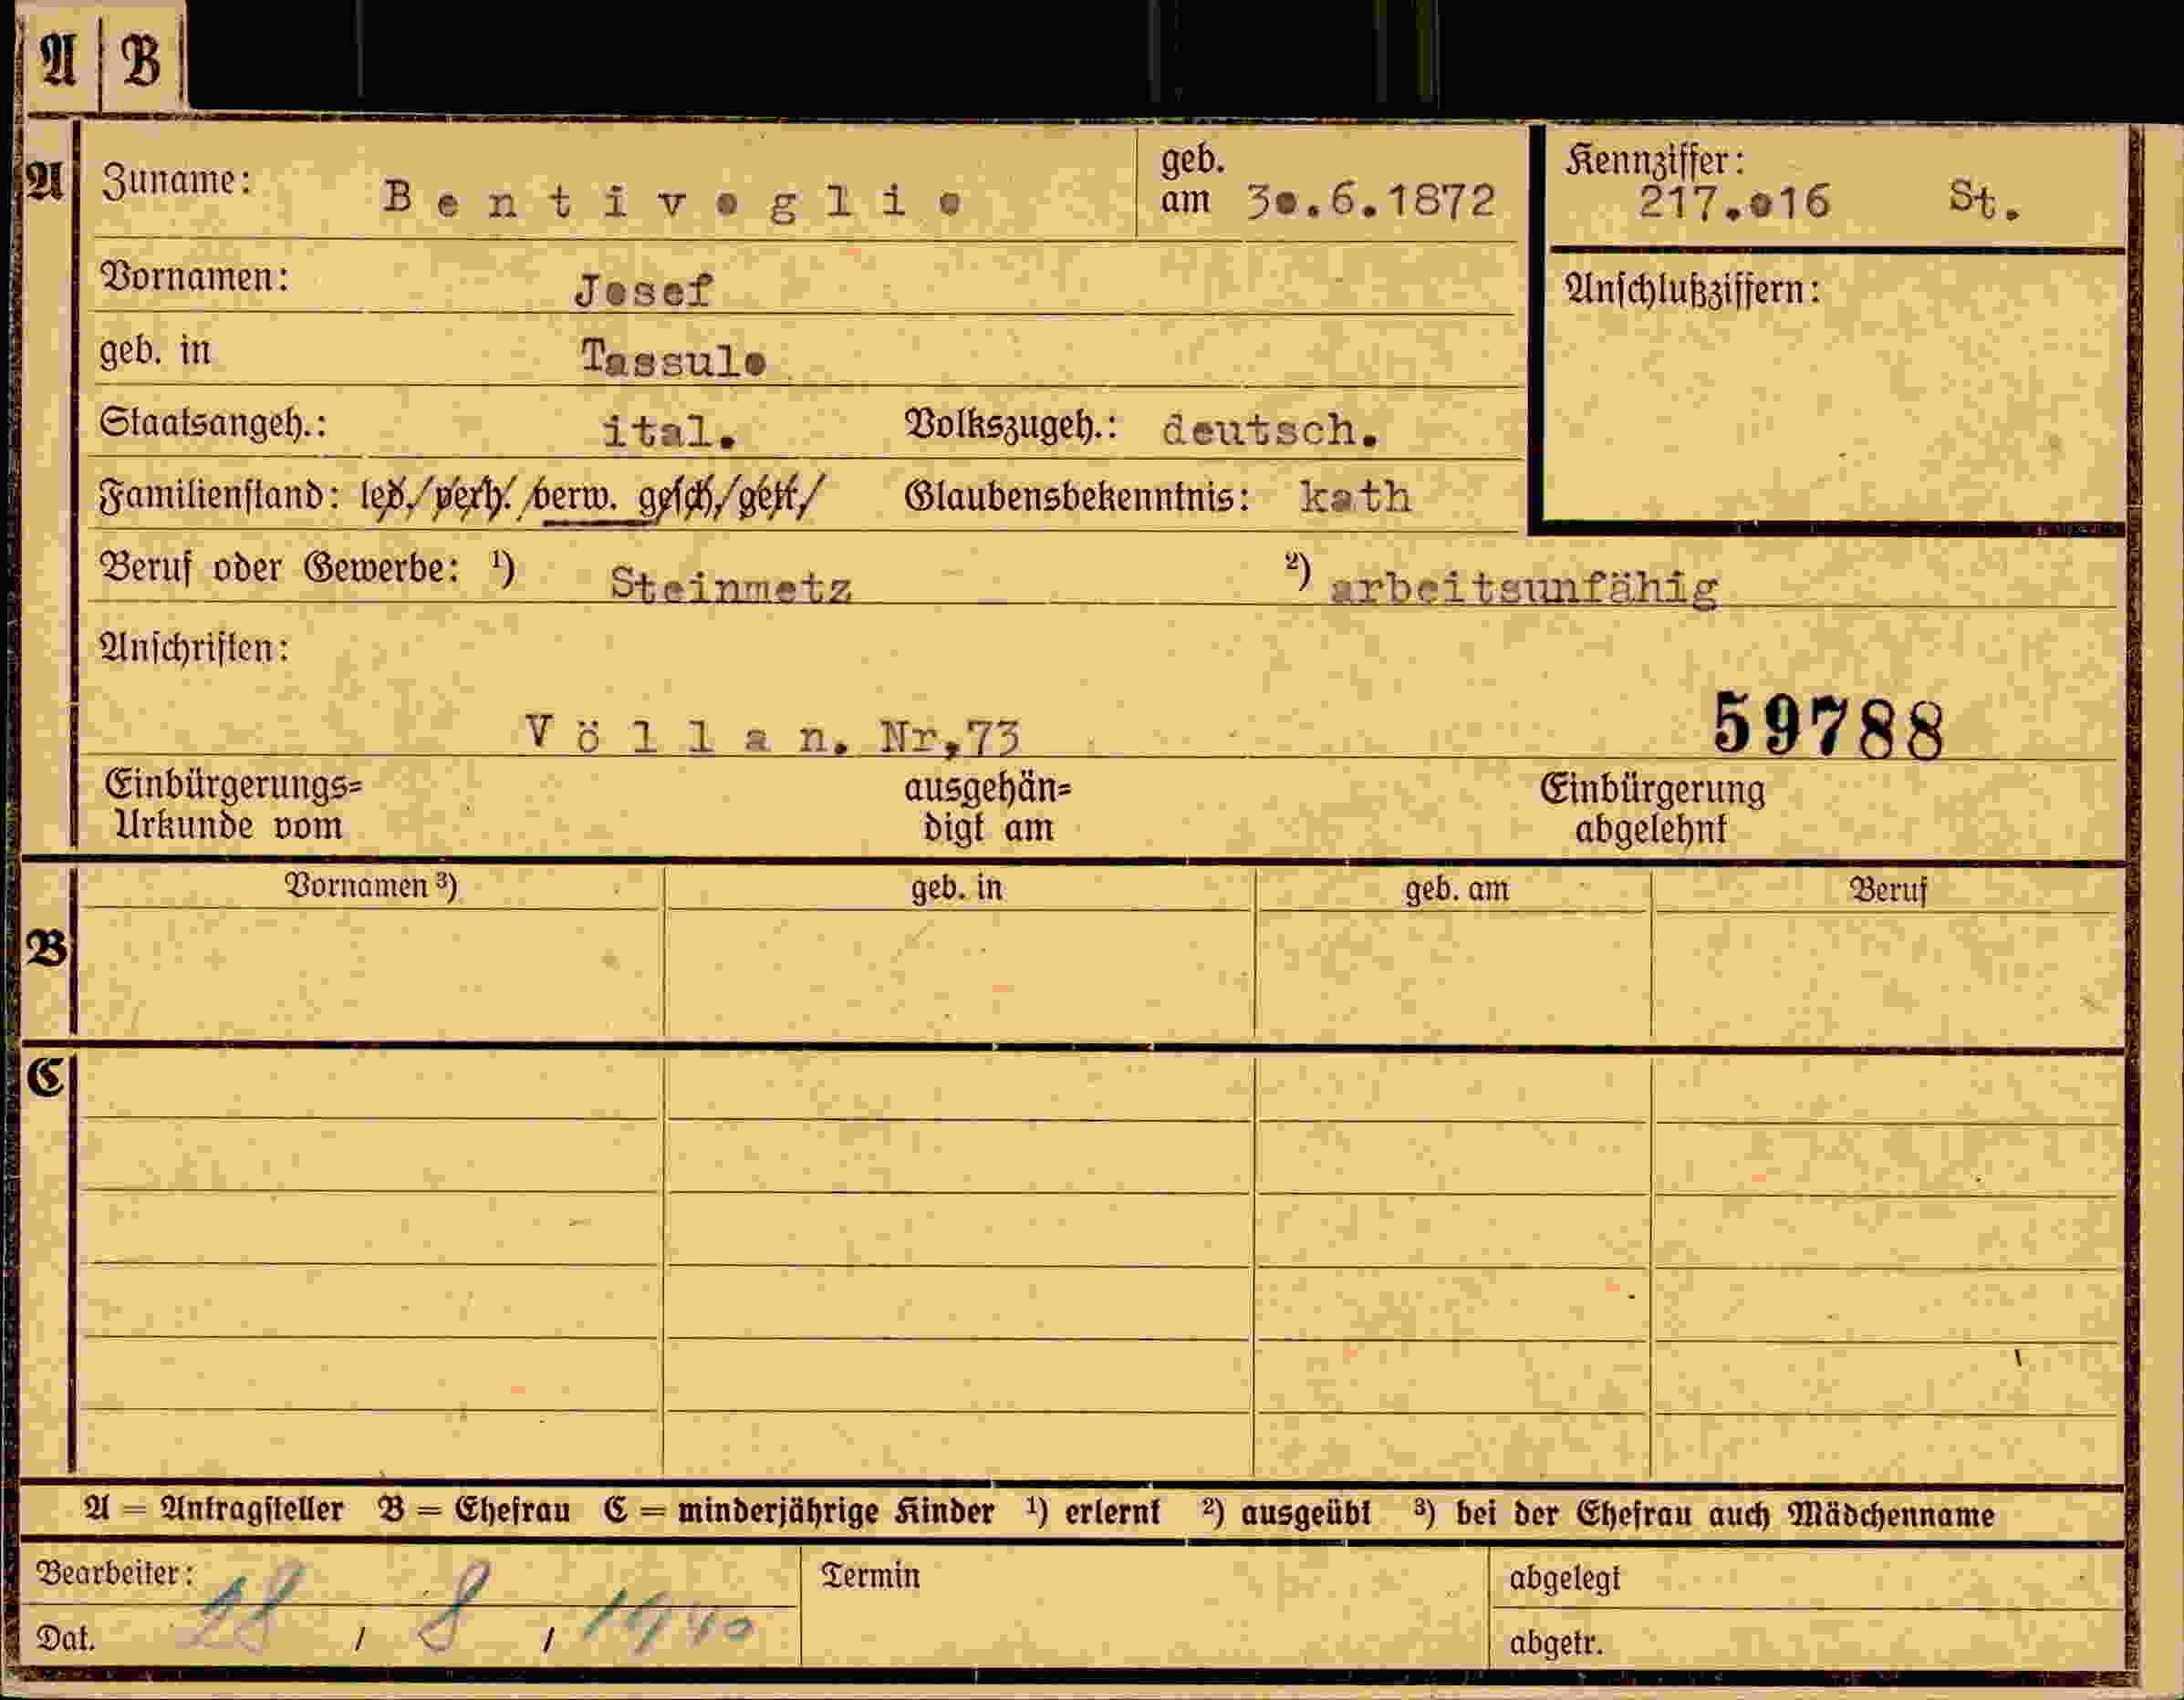 A B
A Zuname: Bentivoglio geb. am 30.6.1872 Kennziffer: 217.016 St.
Vornamen: Josef Anschlußziffern:
geb. in Tassulo
Staatsangeh.: ital. Volkszugeh.: deutsch.
Familienstand: led./verh./verw. gesch./getr./ Glaubensbekenntnis: kath
Beruf oder Gewerbe: ¹) Steinmetz ²) arbeitsunfähig
Anschriften:
Völlan. Nr,73 59788
Einbürgerungs= ausgehän= Einbürgerung
Urkunde vom digt am abgelehnt
B Vornamen ³) geb. in geb. am Beruf
C
A = Antragsteller B = Ehefrau C = minderjährige Kinder ¹) erlernt ²) ausgeübt ³) bei der Ehefrau auch Mädchenname
Bearbeiter: Termin abgelegt
Dat. / 8 / 1940 abgetr.